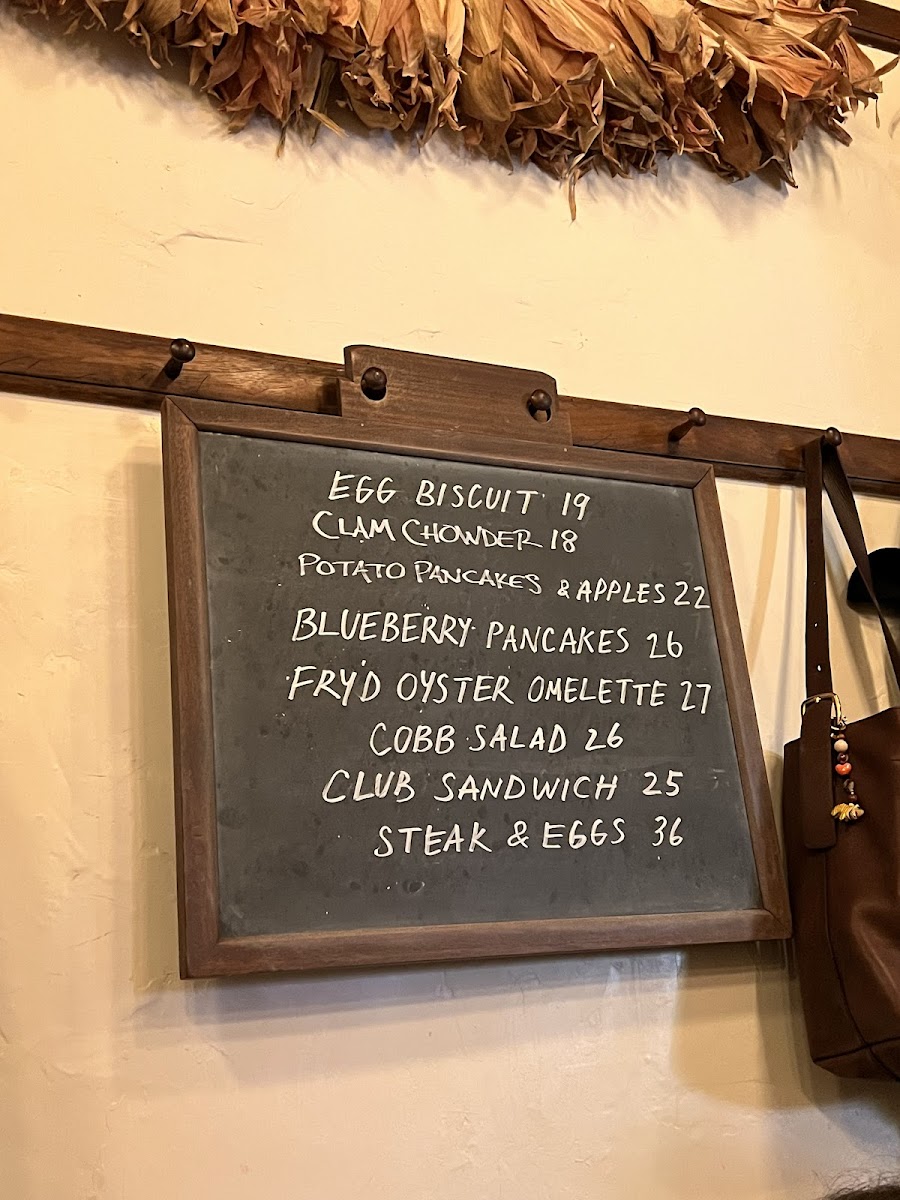 EGG BISCUIT 19
CLAM CHOWDER 18
POTATO PANCAKES & APPLES 22
BLUEBERRY PANCAKES 26
FRY'D OYSTER OMELETTE 27
COBB SALAD 26
CLUB SANDWICH 25
STEAK & EGGS 36